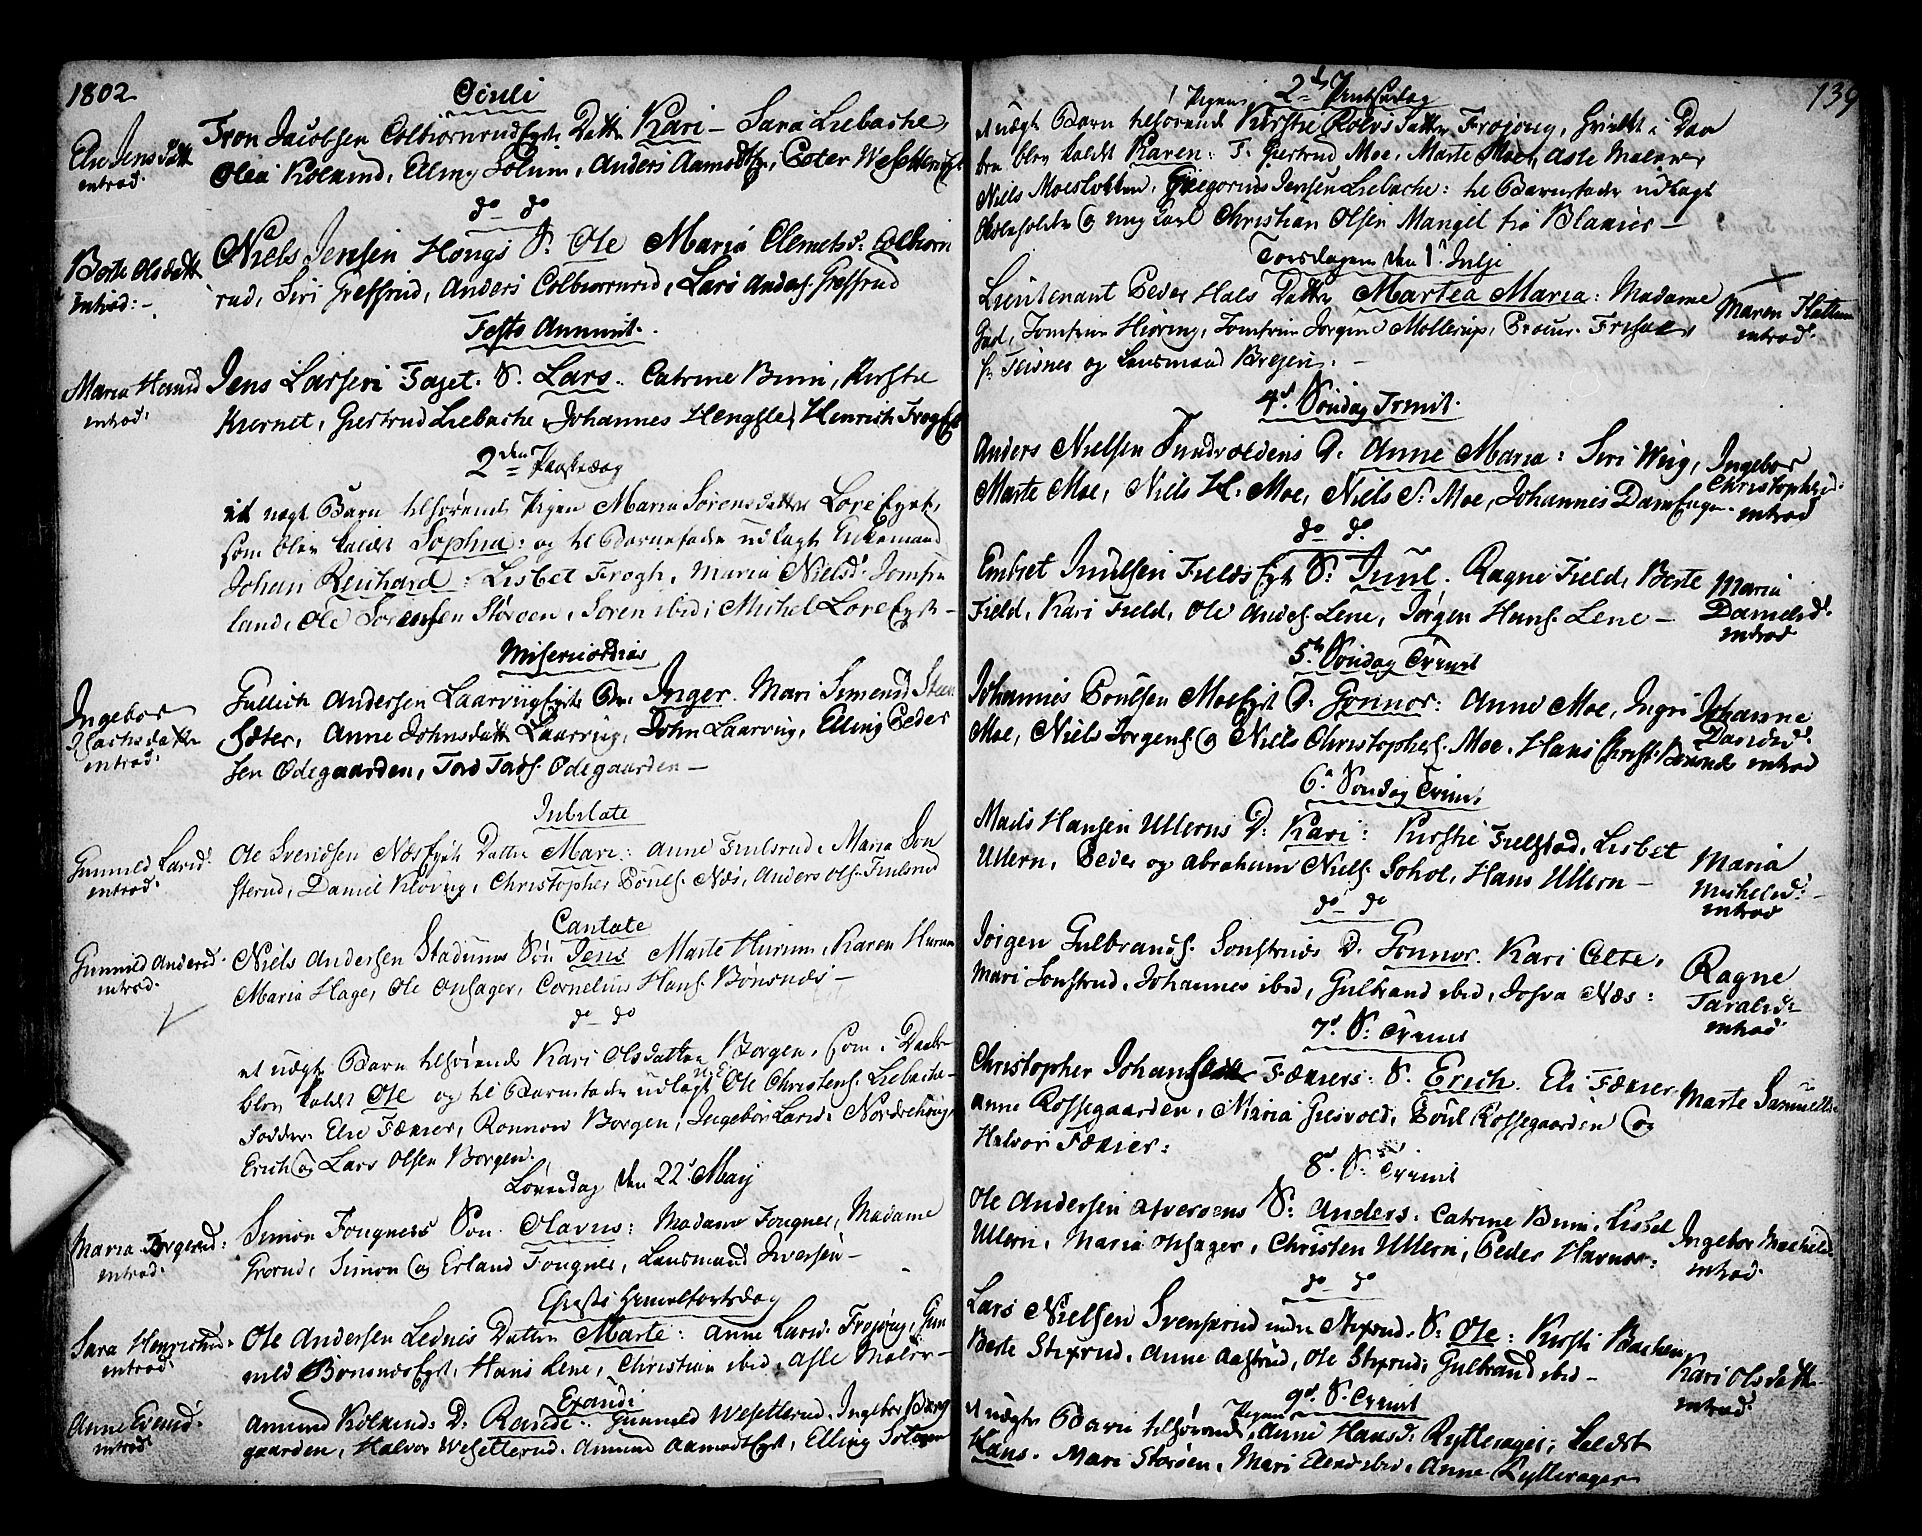 1802
Oculi
Elie Jensdatt
introd.
Tron Jacobsen Colbiørnrud Eyet Datt. Kari - Sara Liebache,
Olea Kolkind, Elling Solum, Anders Aamodt Ey, Peter Wesetterud Eyet
do do
Berte Olsdatt
introd: -
Niels Jensen Hougs S. Ole Maria Clemetsd: Colbiørn
rud, Siri Greffrud, Anders Colbiørnrud, Lars Anders. Greffrud
Festo Annunt.
Maria Hansd
introd.
Jens Larsen Faget. S. Lars. Catrine Buni, Kirstie
Kiernet, Giertrud Liebache, Johannes Hengsle, Henrich Frog Ey
2den Paaskedag
et uægt Barn tilhørende Pigen Maria Sørensdatter Lore Eyet,
som blev kaldt Sophia: og til Barnefader udlagt Enkemand
Johan Reinhard: Lisbet Frogh, Maria Nielsd. Jomfru
land, Ole Sørensen Støroen, Søren ibid, Michel Lore Eyet -
Misericordias
Ingebor
Isachsdatter
introd.
Gullich Andersen Laarvig Eyet Dr. Inger. Mari Simensd Steen
Sæter, Anne Johnsdatt Laarvig, John Laarvig, Elling Peder
sen Ødegaarden, Tord Tords. Ødegaarden -
Jubilate
Gunnild Larsd.
introd.
Ole Svendsen Næs Eyet Datter Mari: Anne Fiulsrud, Maria Son
sterud, Daniel Kloving, Christopher Povels. Næs, Anders Ols. Fiulsrud
Cantate
Gunnild Andersd.
introd.
Niels Andersen Stadums Søn Jens Marte Hurum, Karen Hurum
Maria Hage, Ole Onsager, Cornelius Hans. Bønsnæs -
do - do
et uægt Barn tilhørende Kari Olsdatter Borgen, som i Daaben
blev kaldt Ole og til Barnefader udlagt Ole Christens. Liebache -
Faddere Elie Fækier, Ronnow Borgen, Ingebor Larsd. Nordrehring
Erich og Lars Olsen Borgen.
Løverdag den 22. Maij
Maria Jorgensd:
introd.
Simon Fougners Søn Olavus: Madame Fougner, Madame
Grorud, Simon og Erland Fougner, Lensmand Iversen -
Christi Himelfartsdag
Sara Henrichsd.
introd.
Ole Andersen Lednes Datter Marte: Anne Larsd. Frojoug, Gun
nild Bonsnæs Eyet, Hans Lene, Christian ibid, Asle Maler -
Exaudi
Anne Evensd.
introd.
Amund Kolkinds D. Randi. Gunnild Wesetterud, Ingebor Berg
gaarden, Halvor Wesetterud. Amund Aamodt Eyet, Elling Solum
139
2d Pintsedag
et uægte Barn tilhørende Pigen Kirstie Roelvsdatter Frojoug, hvilket i Daa
ben blev kaldt Karen: F. Giertrud Moe, Marte Moe, Asle Maler
Niels Moeslotten, Gregorius Jensen Liebache: til Barnefader udlagt
og ung Carl Christian Olsen Mangel fra Blaaier -
Torsdagen den 1. Julje
Lieutenant Peder Hals Datter Martea Maria: Madame
Gad, Jomfrue Hiering, Jomfrue Jorgen Mollerup, Procur.
Hr. Teisner og Lensmand Bregen. -
Maren Klattum
introd.
4de Søndag Trinit.
Anders Nielsen Tundvoldens D. Anne Maria: Siri Wiig,
Marte Moe, Niels H. Moe, Niels S. Moe, Johannes Dam Enge.
Ingebor
Christophersd.
introd
do do
Embret Juulsen Fields Eyet S. Juul. Ragne Field, Berte
Field, Kari Field, Ole Anders. Lene, Jørgen Hans. Lene -
Maria
Danielsd.
introd
5te Søndag Trinit
Johannes Povelsen Moe Eyet D. Gonnor: Anne Moe, Ingri
Moe, Niels Jorgens. og Niels Christophers. Moe. Hans Christ.
Johanne
Davidsd.
introd
6te Søndag Trinit
Mads Hansen Ullerns D. Kari: Kirstie Fielstad, Lisbet
Ullern, Peder og Abraham Niels. Sohol, Hans Ullern -
Maria
Michelsd.
introd
do - do
Jorgen Gulbrands. Sonsteruds D. Gonnor. Kari Celte,
Mari Sonsterud, Johannes ibid, Gulbrand ibid, Josva Næs:
Ragne
Taralsd.
introd
7de S. Trinit
Christopher Johans Fækiers: S. Erich. Eli Fækier
Anne Rossegaarden, Maria Gresvold, Povel Rossegaarden og
Halvor Fækier:
Marte Samuelsd.
8de S. Trinit
Ole Andersen Afveroens S. Anders. Catrine Buni, Lisbet
Ullern, Maria Opsager, Christen Ullern, Peder Havnor:
Ingebor Michelsd
introd.
do do
Lars Nielsen Svensrud under Stixrud. S. Ole: Kirsti Bachen
Berte Stixrud, Anne Aastrud, Ole Stixrud, Gulbrand ibid -
Kari Olsdatt
introd.
9de S. Trinit
et uægte Barn tilhørende Pigen Anne Hansd. Rytterager, kaldt
Hans. Mari Storoen, Mari Elend ibid, Anne Rytterager